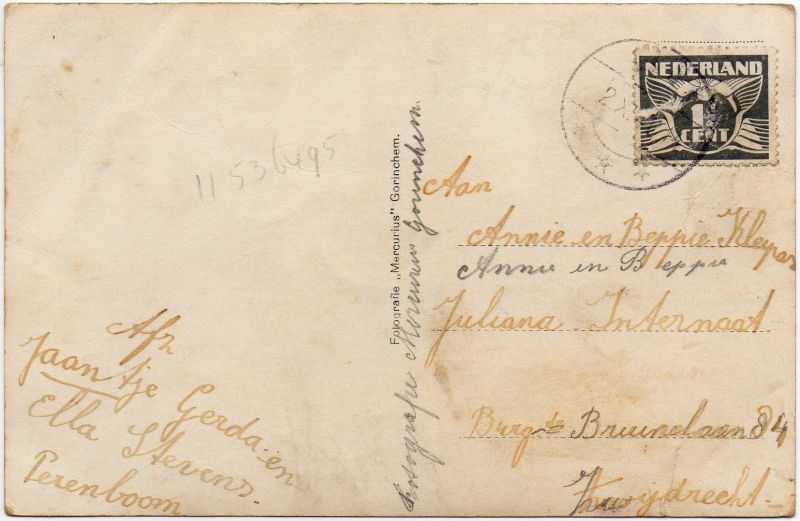 NEDERLAND
1
CENT
11536495
Fotografie „Mercurius" Gorinchem.
Fotografie Gorinchem.
Aan
Annie en Beppie Kleyan
Annie en Beppie
Juliana Internaat
Burg de Bruinelaan 84
Zwijndrecht
Afz
Jaantje Gerda en
Ella Stevens
Perenboom